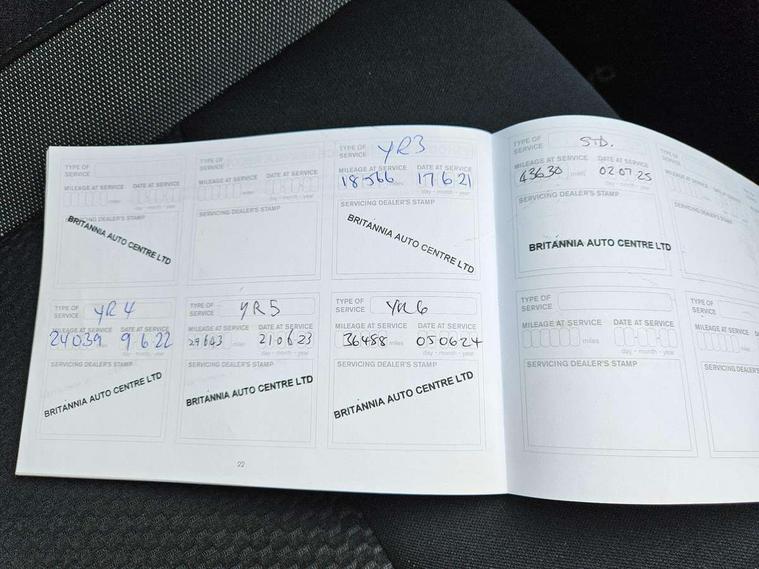 TYPE OF SERVICE
MILEAGE AT SERVICE DATE AT SERVICE
miles
SERVICING DEALER'S STAMP
BRITANNIA AUTO CENTRE LTD
TYPE OF SERVICE
MILEAGE AT SERVICE DATE AT SERVICE
SERVICING DEALER'S STAMP
TYPE OF SERVICE YR3
MILEAGE AT SERVICE DATE AT SERVICE
18566 miles 17.6.21
day - month - year
SERVICING DEALER'S STAMP
BRITANNIA AUTO CENTRE LTD
TYPE OF SERVICE YR4
MILEAGE AT SERVICE DATE AT SERVICE
24039 9.6.22
day - month - year
SERVICING DEALER'S STAMP
BRITANNIA AUTO CENTRE LTD
TYPE OF SERVICE YR5
MILEAGE AT SERVICE DATE AT SERVICE
29643 miles 21.06.23
day - month - year
SERVICING DEALER'S STAMP
BRITANNIA AUTO CENTRE LTD
TYPE OF SERVICE YR6
MILEAGE AT SERVICE DATE AT SERVICE
36488 miles 050624
day - month - year
SERVICING DEALER'S STAMP
BRITANNIA AUTO CENTRE LTD
22
TYPE OF SERVICE STD.
MILEAGE AT SERVICE DATE AT SERVICE
43630 miles 02.07.25
day - month - year
SERVICING DEALER'S STAMP
BRITANNIA AUTO CENTRE LTD
TYPE OF SERVICE
MILEAGE AT SERVICE DATE AT SERVICE
miles day - month - year
SERVICING DEALER'S STAMP
TYPE OF SERVICE
MILEAGE AT SERVICE
SERVICING
TYPE OF SERVICE
MILEAGE AT SE
SERVICING DE